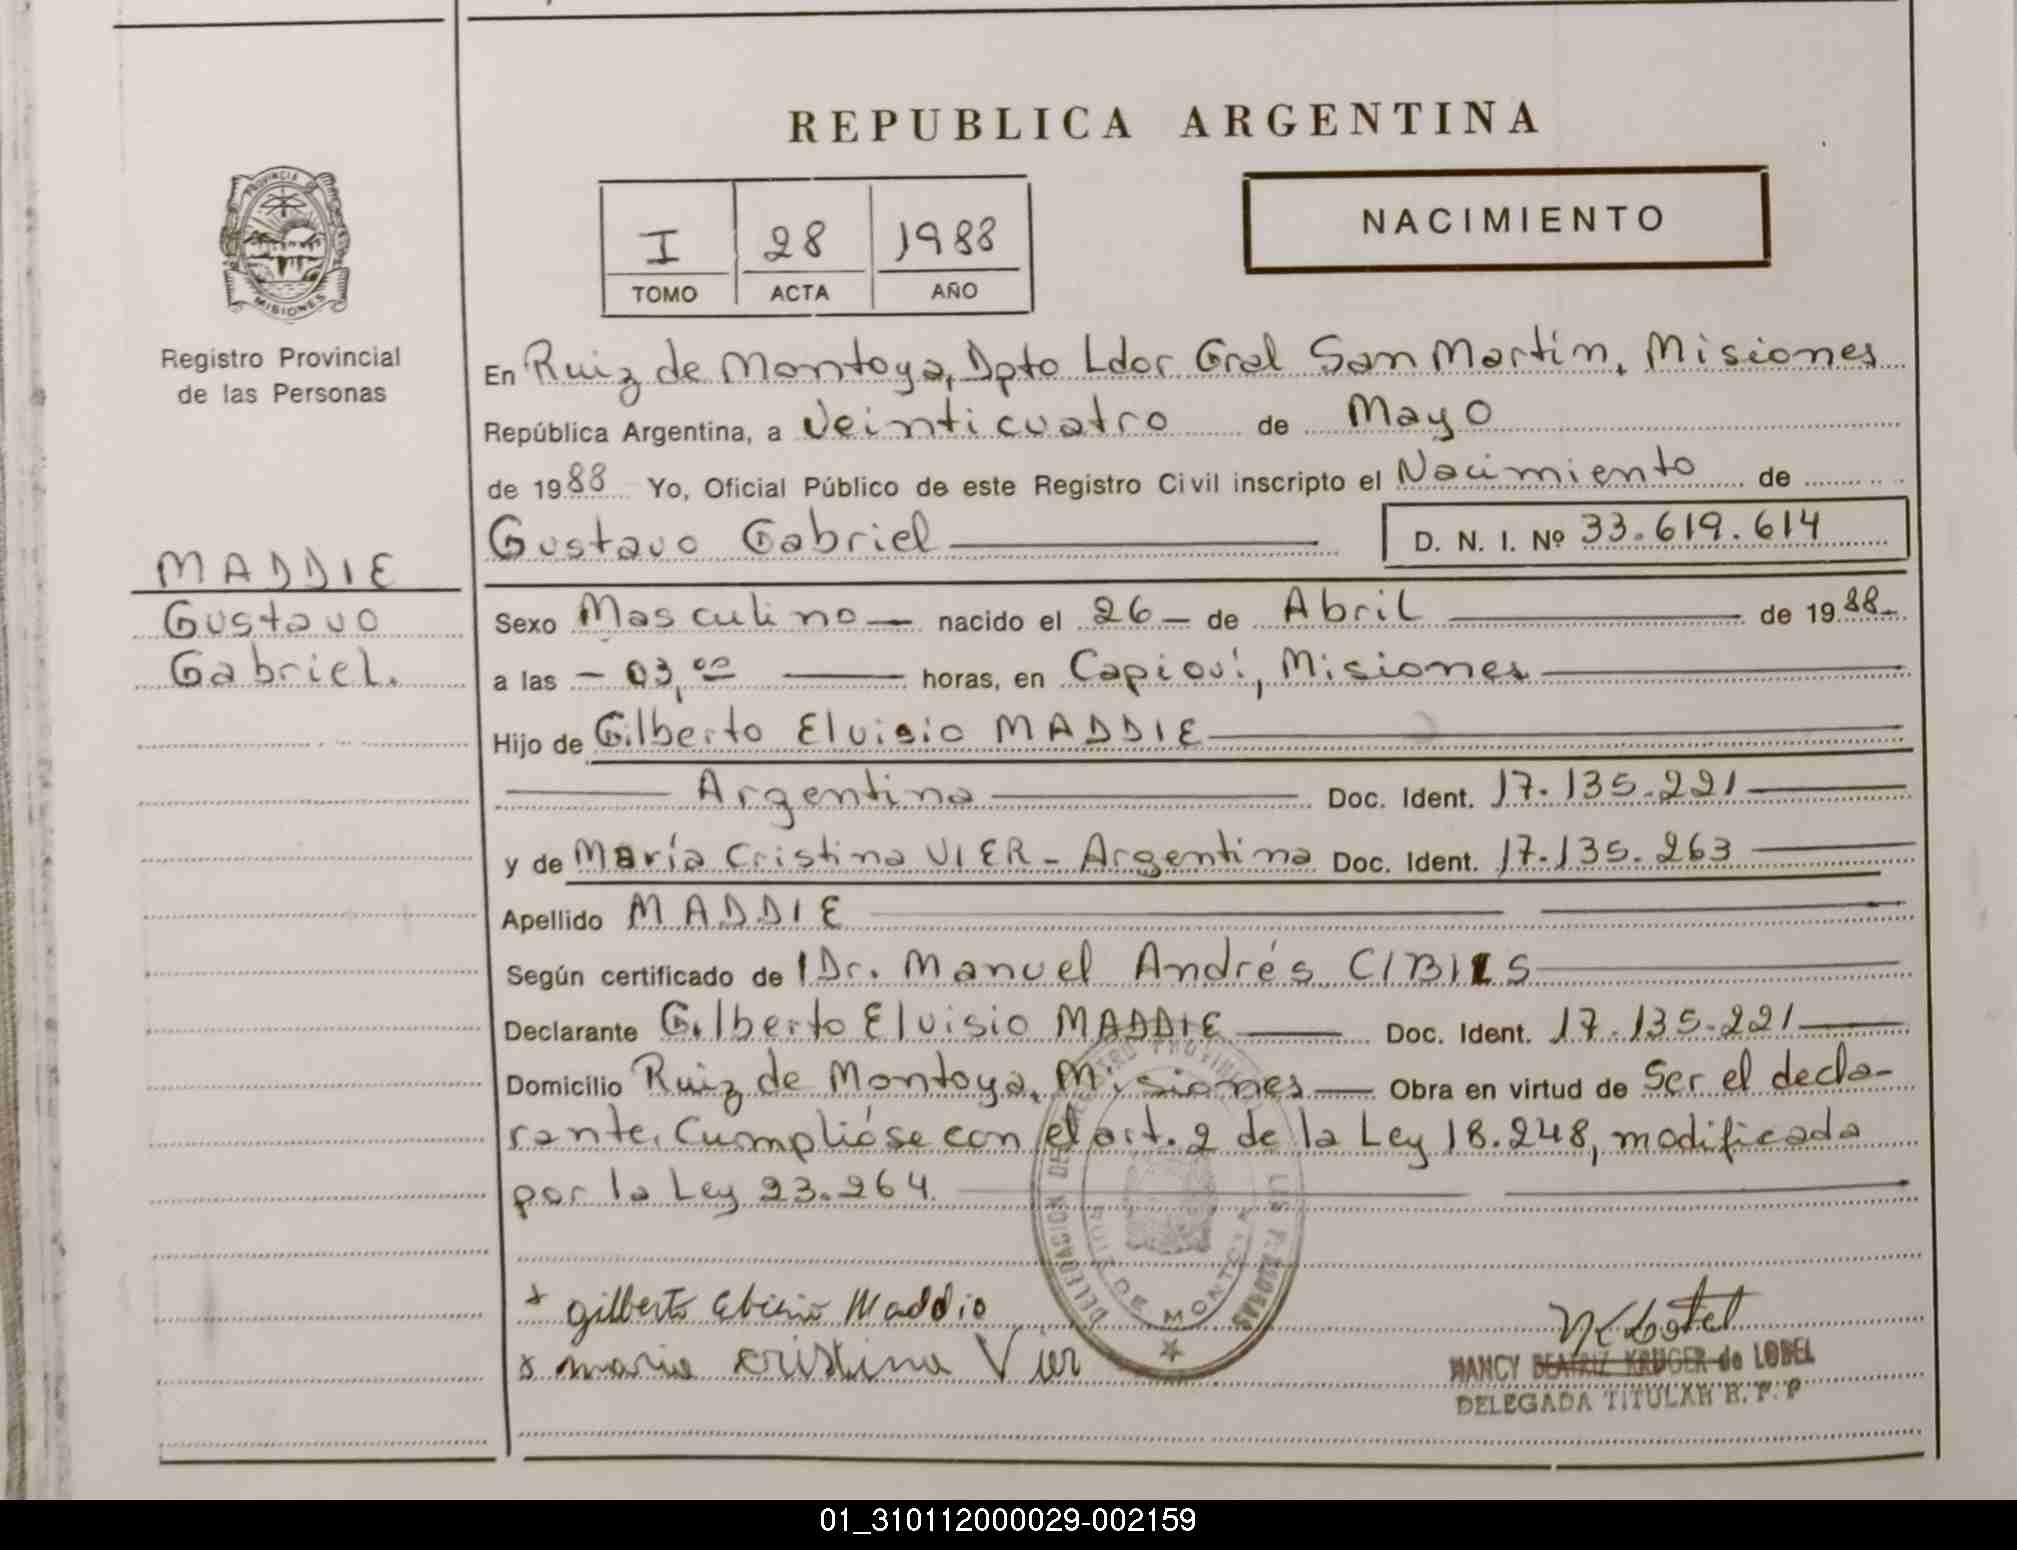 REPUBLICA ARGENTINA
PROVINCIA DE
MISIONES
Registro Provincial
de las Personas
I 28 1988
TOMO ACTA AÑO
NACIMIENTO
En Ruiz de Montoya, Dpto Ldor Gral San Martín, Misiones
República Argentina, a Veinticuatro de Mayo
de 1988 Yo, Oficial Público de este Registro Civil inscripto el Nacimiento de
Gustavo Gabriel D. N. I. Nº 33.619.614
MADDIE
Gustavo
Gabriel.
Sexo Masculino — nacido el 26 — de Abril de 1988 —
a las — 03,00 horas, en Capioví, Misiones
Hijo de Gilberto Eluisio MADDIE
Argentina Doc. Ident. 17.135.221
y de María Cristina VIER - Argentina Doc. Ident. 17.135.263
Apellido MADDIE
Según certificado de Dr. Manuel Andrés CIBILS
Declarante Gilberto Eluisio MADDIE Doc. Ident. 17.135.221
Domicilio Ruiz de Montoya, Misiones — Obra en virtud de Ser el decla-
rante. Cumplióse con el art. 2 de la Ley 18.248, modificada
por la Ley 23.264.
DELEGACION DE MONTOYA
gilberto Maddie
maria cristina Vier
NANCY BEATRIZ KRUGER de LOBEL
DELEGADA TITULAR R. P. P
01_310112000029-002159